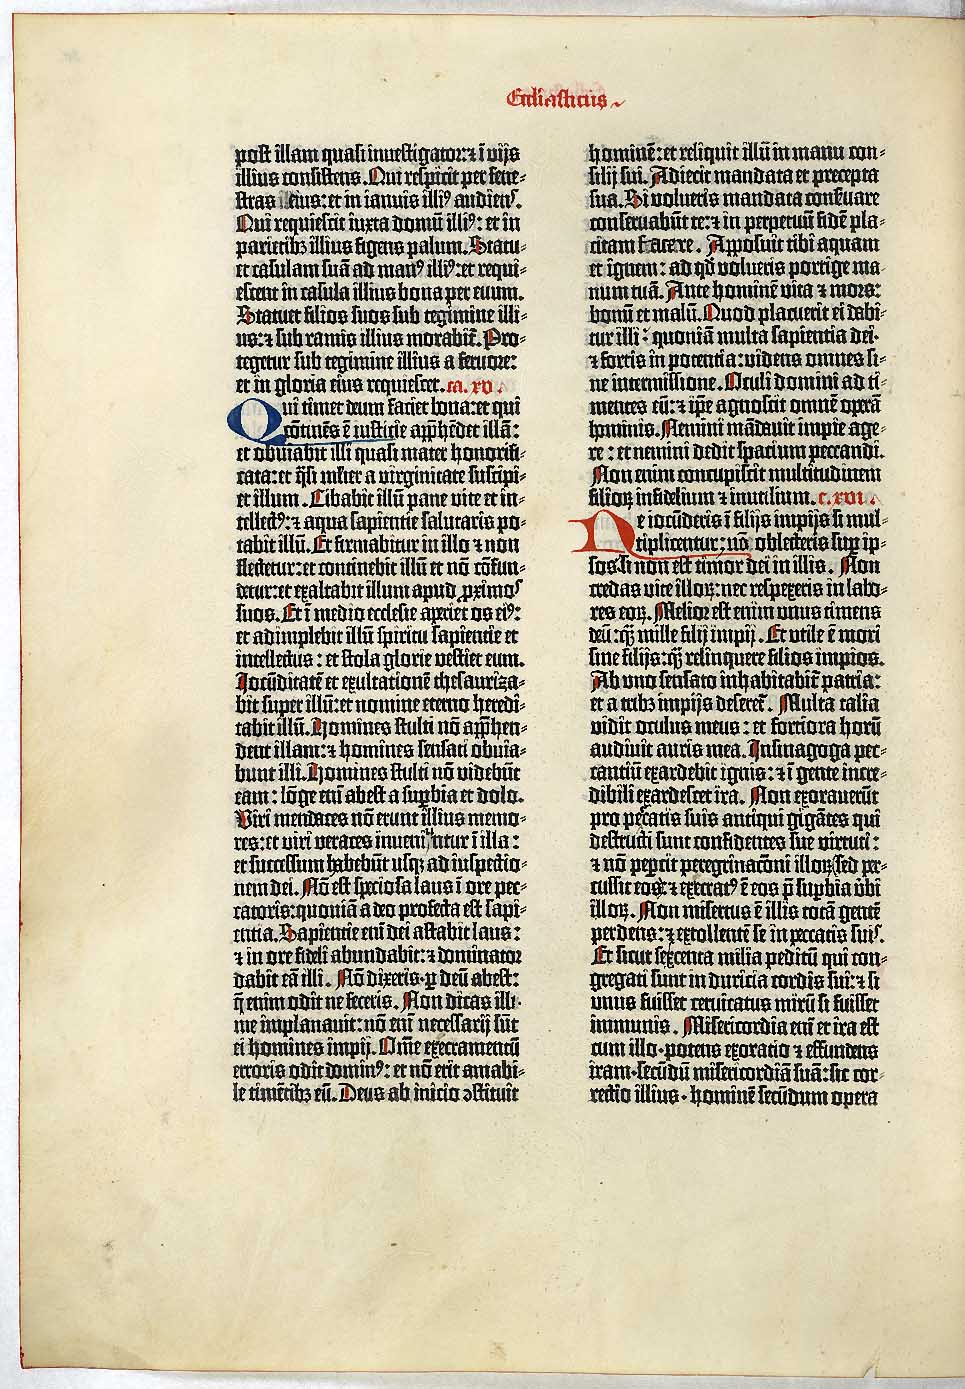 Ecclesiasticus
post illam quasi inuestigator: ⁊ ī vijs
illius consistens. Qui respicit per fene-
stras illius: et in ianuis illiꝰ audiens.
Qui requiescit iuxta domū illiꝰ: et in
parietibꝫ illius figens palum. Statu-
et casulam suā ad manꝰ illiꝰ: et requi-
escent in casula illius bona per euum.
Statuet filios suos sub tegimine illi-
us: ⁊ sub ramis illius morabit̄. Pro-
tegetur sub tegimine illius a feruore:
et in gloria eius requiescet. ca. xv.
Qui timet deum faciet bona: et qui
cōtinēs ē iusticie appͬhēdet illā:
et obuiabit illi quasi mater honorifi-
cata: et q̄si mlier a virginitate suscipi-
et illum. Cibabit illū pane vite et in-
tellectꝰ: ⁊ aqua sapientie salutaris po-
tabit illū. Et firmabitur in illo ⁊ non
flectetur: et continebit illū et nō cōfun-
detur: et exaltabit illum apud ꝓximos
suos. Et ī medio ecclesie aperiet os eiꝰ:
et adimplebit illū spiritu sapientie et
intellectus: et stola glorie vestiet eum.
Iocūditatē et exultationē thesauriza-
bit super illū: et nomine eterno heredi-
tabit illū. Homines stulti nō appͬhen-
dent illam: ⁊ homines sensati obuia-
bunt illi. Homines stulti nō videbūt
eam: lōge em̄ abest a suꝑbia et dolo.
Viri mendaces nō erunt illius memo-
res: et viri veraces inueniūtur ī illa:
et successum habebūt usqꝫ ad inspectio-
nem dei. Nō est speciosa laus ī ore pec-
catoris: quoniā a deo profecta est sapi-
entia. Sapientie em̄ dei astabit laus:
⁊ in ore fideli abundabit: ⁊ dominator
dabit eā illi. Nō dixeris ꝑ deū abest:
q̄ enim odit ne feceris. Non dicas ille
me implanauit: nō em̄ necessarij sūt
ei homines impij. Om̄e execramentū
erroris odit dominꝰ: et nō erit amabi-
le timētibꝫ eū. Deus ab inicio ꝯstituit
hominē: et reliquit illū in manu con-
silij sui. Adiecit mandata et precepta
sua. Si volueris mandata conseruare
conseruabūt te: ⁊ in perpetuū fidē pla-
citam facere. Apposuit tibi aquam
et ignem: ad qd̄ volueris porrige ma-
num tuā. Ante hominē vita ⁊ mors:
bonū et malū. Quod placuerit ei dabi-
tur illi: quoniā multa sapientia dei.
⁊ fortis in potentia: videns omnes si-
ne intermissione. Oculi domini ad ti-
mentes eū: ⁊ ip̄e agnoscit omnē operā
hominis. Nemini mādauit impie age-
re: et nemini dedit spacium peccandi.
Non enim concupiscit multitudinem
filioꝝ infidelium ⁊ inutilium. c. xvi.
Ne iocūderis ī filijs impijs si mul-
tiplicentur: nō oblecteris suꝑ ip-
sos si non est timor dei in illis. Non
credas vite illoꝝ: nec respexeris in labo-
res eoꝝ. Melior est enim vnus timens
deū: qͣꝫ mille filij impij. Et vtile ē mori
sine filijs: qͣꝫ relinquere filios impios.
Ab vno sensato inhabitabit̄ patria:
et a tribꝫ impijs deseret̄. Multa talia
vidit oculus meus: et fortiora horū
audiuit auris mea. In sinagoga pec-
cantiū exardebit ignis: ⁊ ī gente incre-
dibili exardescet ira. Non exorauerūt
pro peccatis suis antiqui gigātes qui
destructi sunt confidentes sue virtuti:
⁊ nō peꝑcit peregrinacōni illoꝝ sed per-
cussit eos: ⁊ execratꝰ ē eos p̄ suꝑbia v̄bi
illoꝝ. Non misertus ē illis totā gentē
perdens: ⁊ extollentē se in peccatis suis.
Et sicut sexcenta milia peditū qui con-
gregati sunt in duricia cordis sui: ⁊ si
vnus fuisset ceruicatus mirū si fuisset
immunis. Misericordia em̄ et ira est
cum illo. potens exoratio ⁊ effundens
iram. secūdū misericordiā suā: sic cor-
rectio illius. hominē secūdum opera